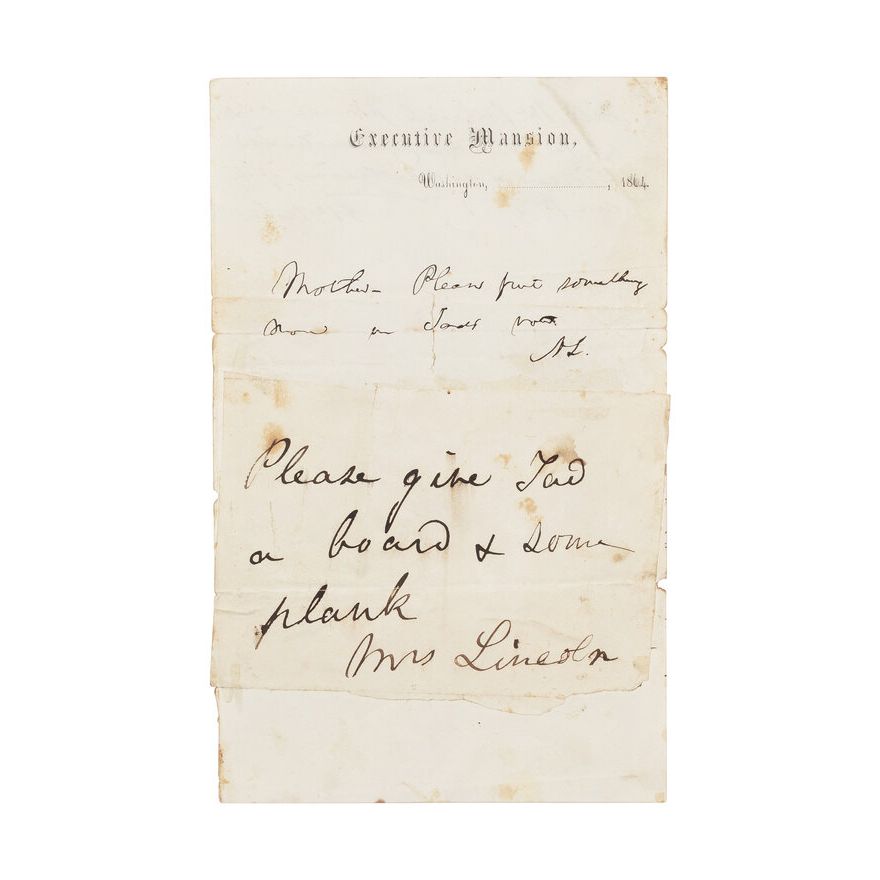 Executive Mansion,
Washington, , 1864.
Mother– Please put something
Tads
AL.
Please give Tad
a board & some
plank
Mrs Lincoln